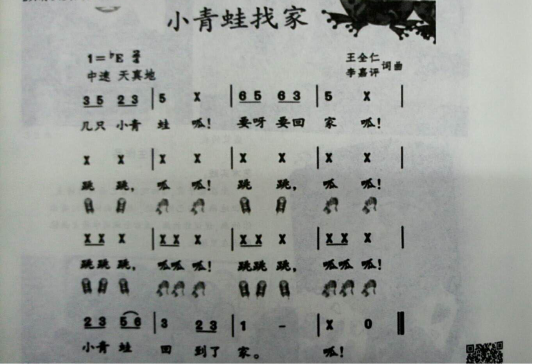 小青蛙找家
1=♭E 2/4
王全仁
李嘉评 词曲
中速 天真地
3 5 2 3 | 5 X | 6 5 6 3 | 5 X |
几只 小青 蛙 呱! 要呀 要回 家 呱!
X X | X X | X X | X X |
跳 跳, 呱 呱! 跳 跳, 呱 呱!
X X X | X X X | X X X | X X X |
跳跳 跳, 呱呱 呱! 跳跳 跳, 呱呱 呱!
2 3 5 6 | 3 2 3 | 1 - | X 0 ‖
小青 蛙 回 到了 家。 呱!